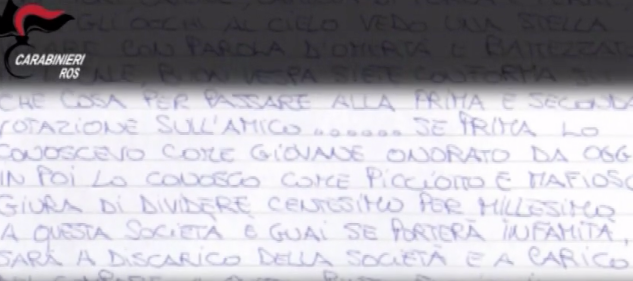 GLI OCCHI AL CIELO VEDO UNA STELLA
CON PAROLA D'OMERTÀ E BATTEZZATO
CARABINIERI
ROS
BUON VESPA SIETE CONFORMA SU
CHE COSA PER PASSARE ALLA PRIMA E SECONDA
VOTAZIONE SULL'AMICO ...... SE PRIMA LO
CONOSCEVO COME GIOVANE ONORATO DA OGG
IN POI LO CONOSCO COME PICCIOTTO E MAFIOSO
GIURA DI DIVIDERE CENTESIMO PER MILLESIMO
A QUESTA SOCIETÀ E GUAI SE PORTERÀ INFAMITÀ,
SARÀ A DISCARICO DELLA SOCIETÀ E A CARICO